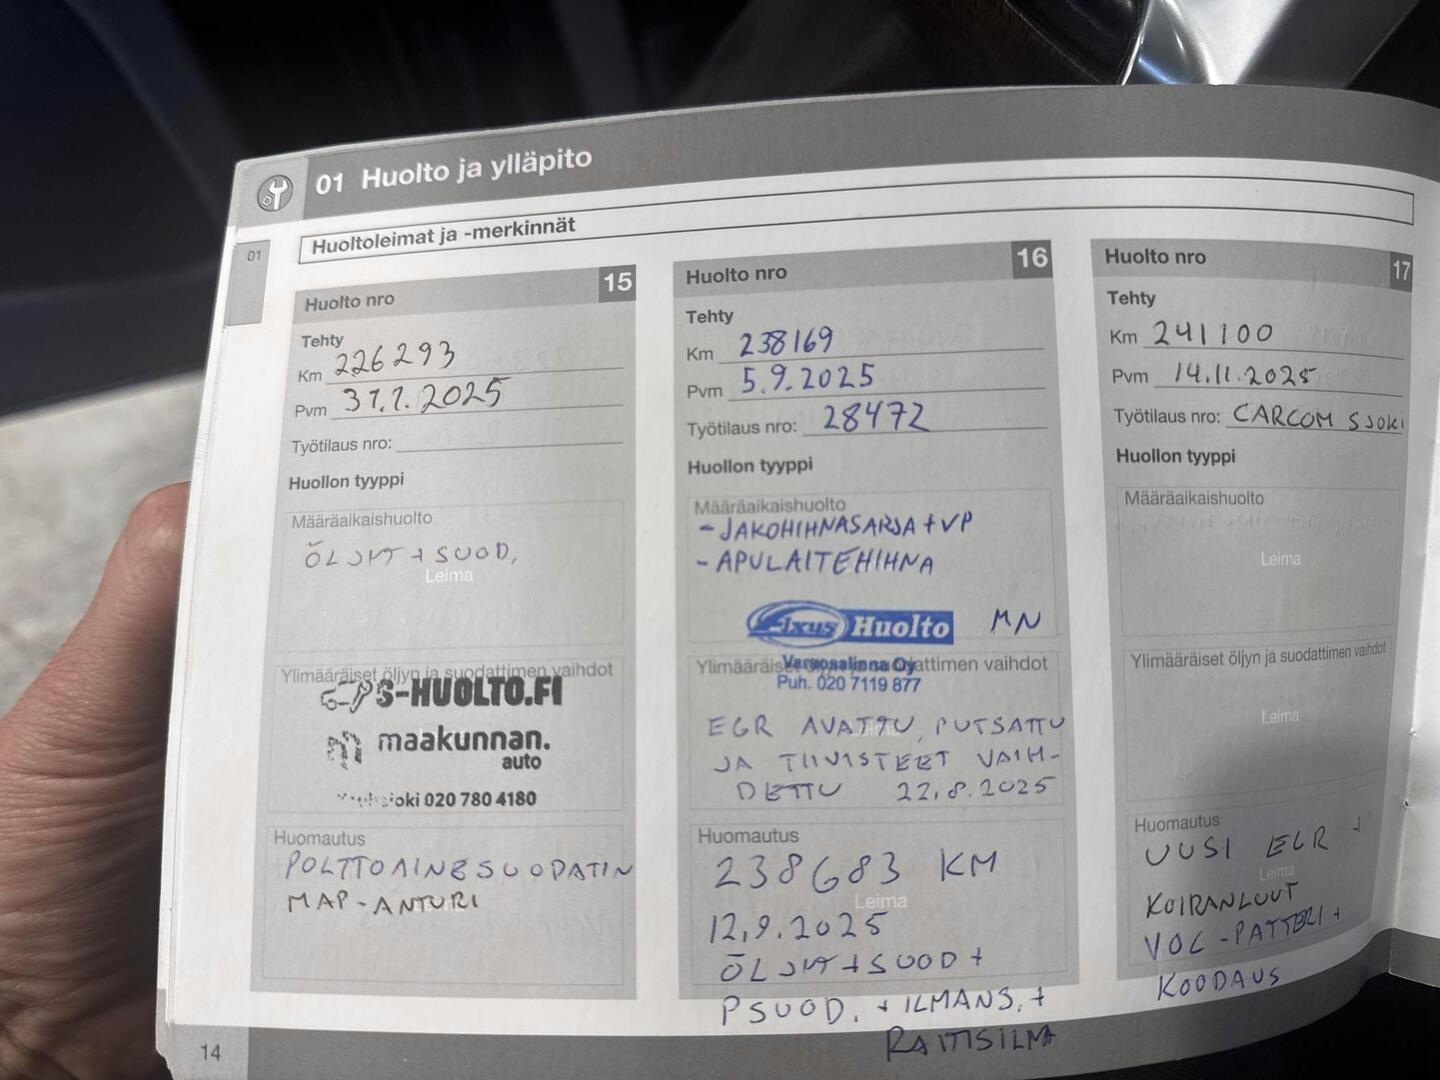 01 Huolto ja ylläpito
Huoltoleimat ja -merkinnät
01
Huolto nro 15
Tehty
Km 226293
Pvm 31.7.2025
Työtilaus nro:
Huollon tyyppi
Määräaikaishuolto
ÖLJYT + SUOD.
Leima
Ylimääräiset öljyn ja suodattimen vaihdot
S-HUOLTO.FI
maakunnan.
auto
020 780 4180
Huomautus
POLTTOAINESUODATIN
MAP-ANTURI
Huolto nro 16
Tehty
Km 238169
Pvm 5.9.2025
Työtilaus nro: 28472
Huollon tyyppi
Määräaikaishuolto
- JAKOHIHNASARJA + VP
- APULAITEHIHNA
Fixus Huolto MN
Ylimääräiset öljyn ja suodattimen vaihdot
Puh. 020 7119 877
EGR AVATTU, PUTSATTU
Leima
JA TIIVISTEET VAIH-
DETTU 22.8.2025
Huomautus
238683 KM
Leima
12.9.2025
ÖLJYT + SUOD +
PSUOD. + ILMANS. +
RAITISILMA
Huolto nro 17
Tehty
Km 241100
Pvm 14.11.2025
Työtilaus nro: CARCOM SJOKI
Huollon tyyppi
Määräaikaishuolto
Leima
Ylimääräiset öljyn ja suodattimen vaihdot
Leima
Huomautus
UUSI EGR +
Leima
KOIRANLUUT
VOC-PATTERI +
KOODAUS
14